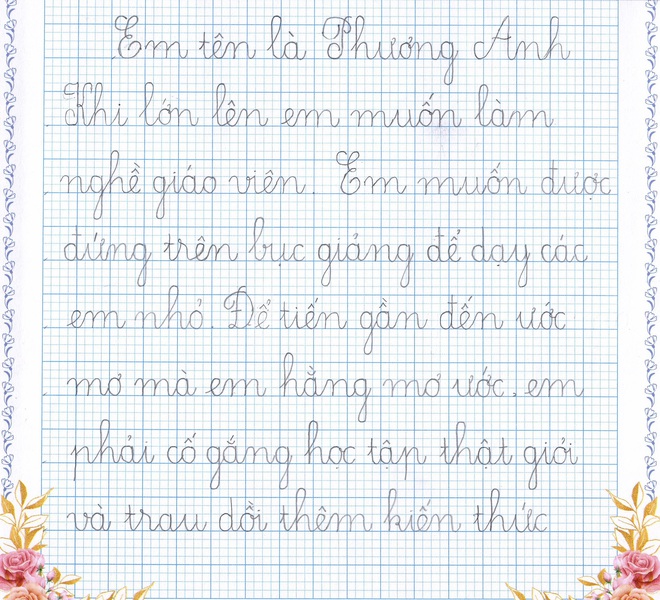 Em tên là Phương Anh
Khi lớn lên em muốn làm
nghề giáo viên. Em muốn được
đứng trên bục giảng để dạy các
em nhỏ. Để tiến gần đến ước
mơ mà em hằng mơ ước, em
phải cố gắng học tập thật giỏi
và trau dồi thêm kiến thức